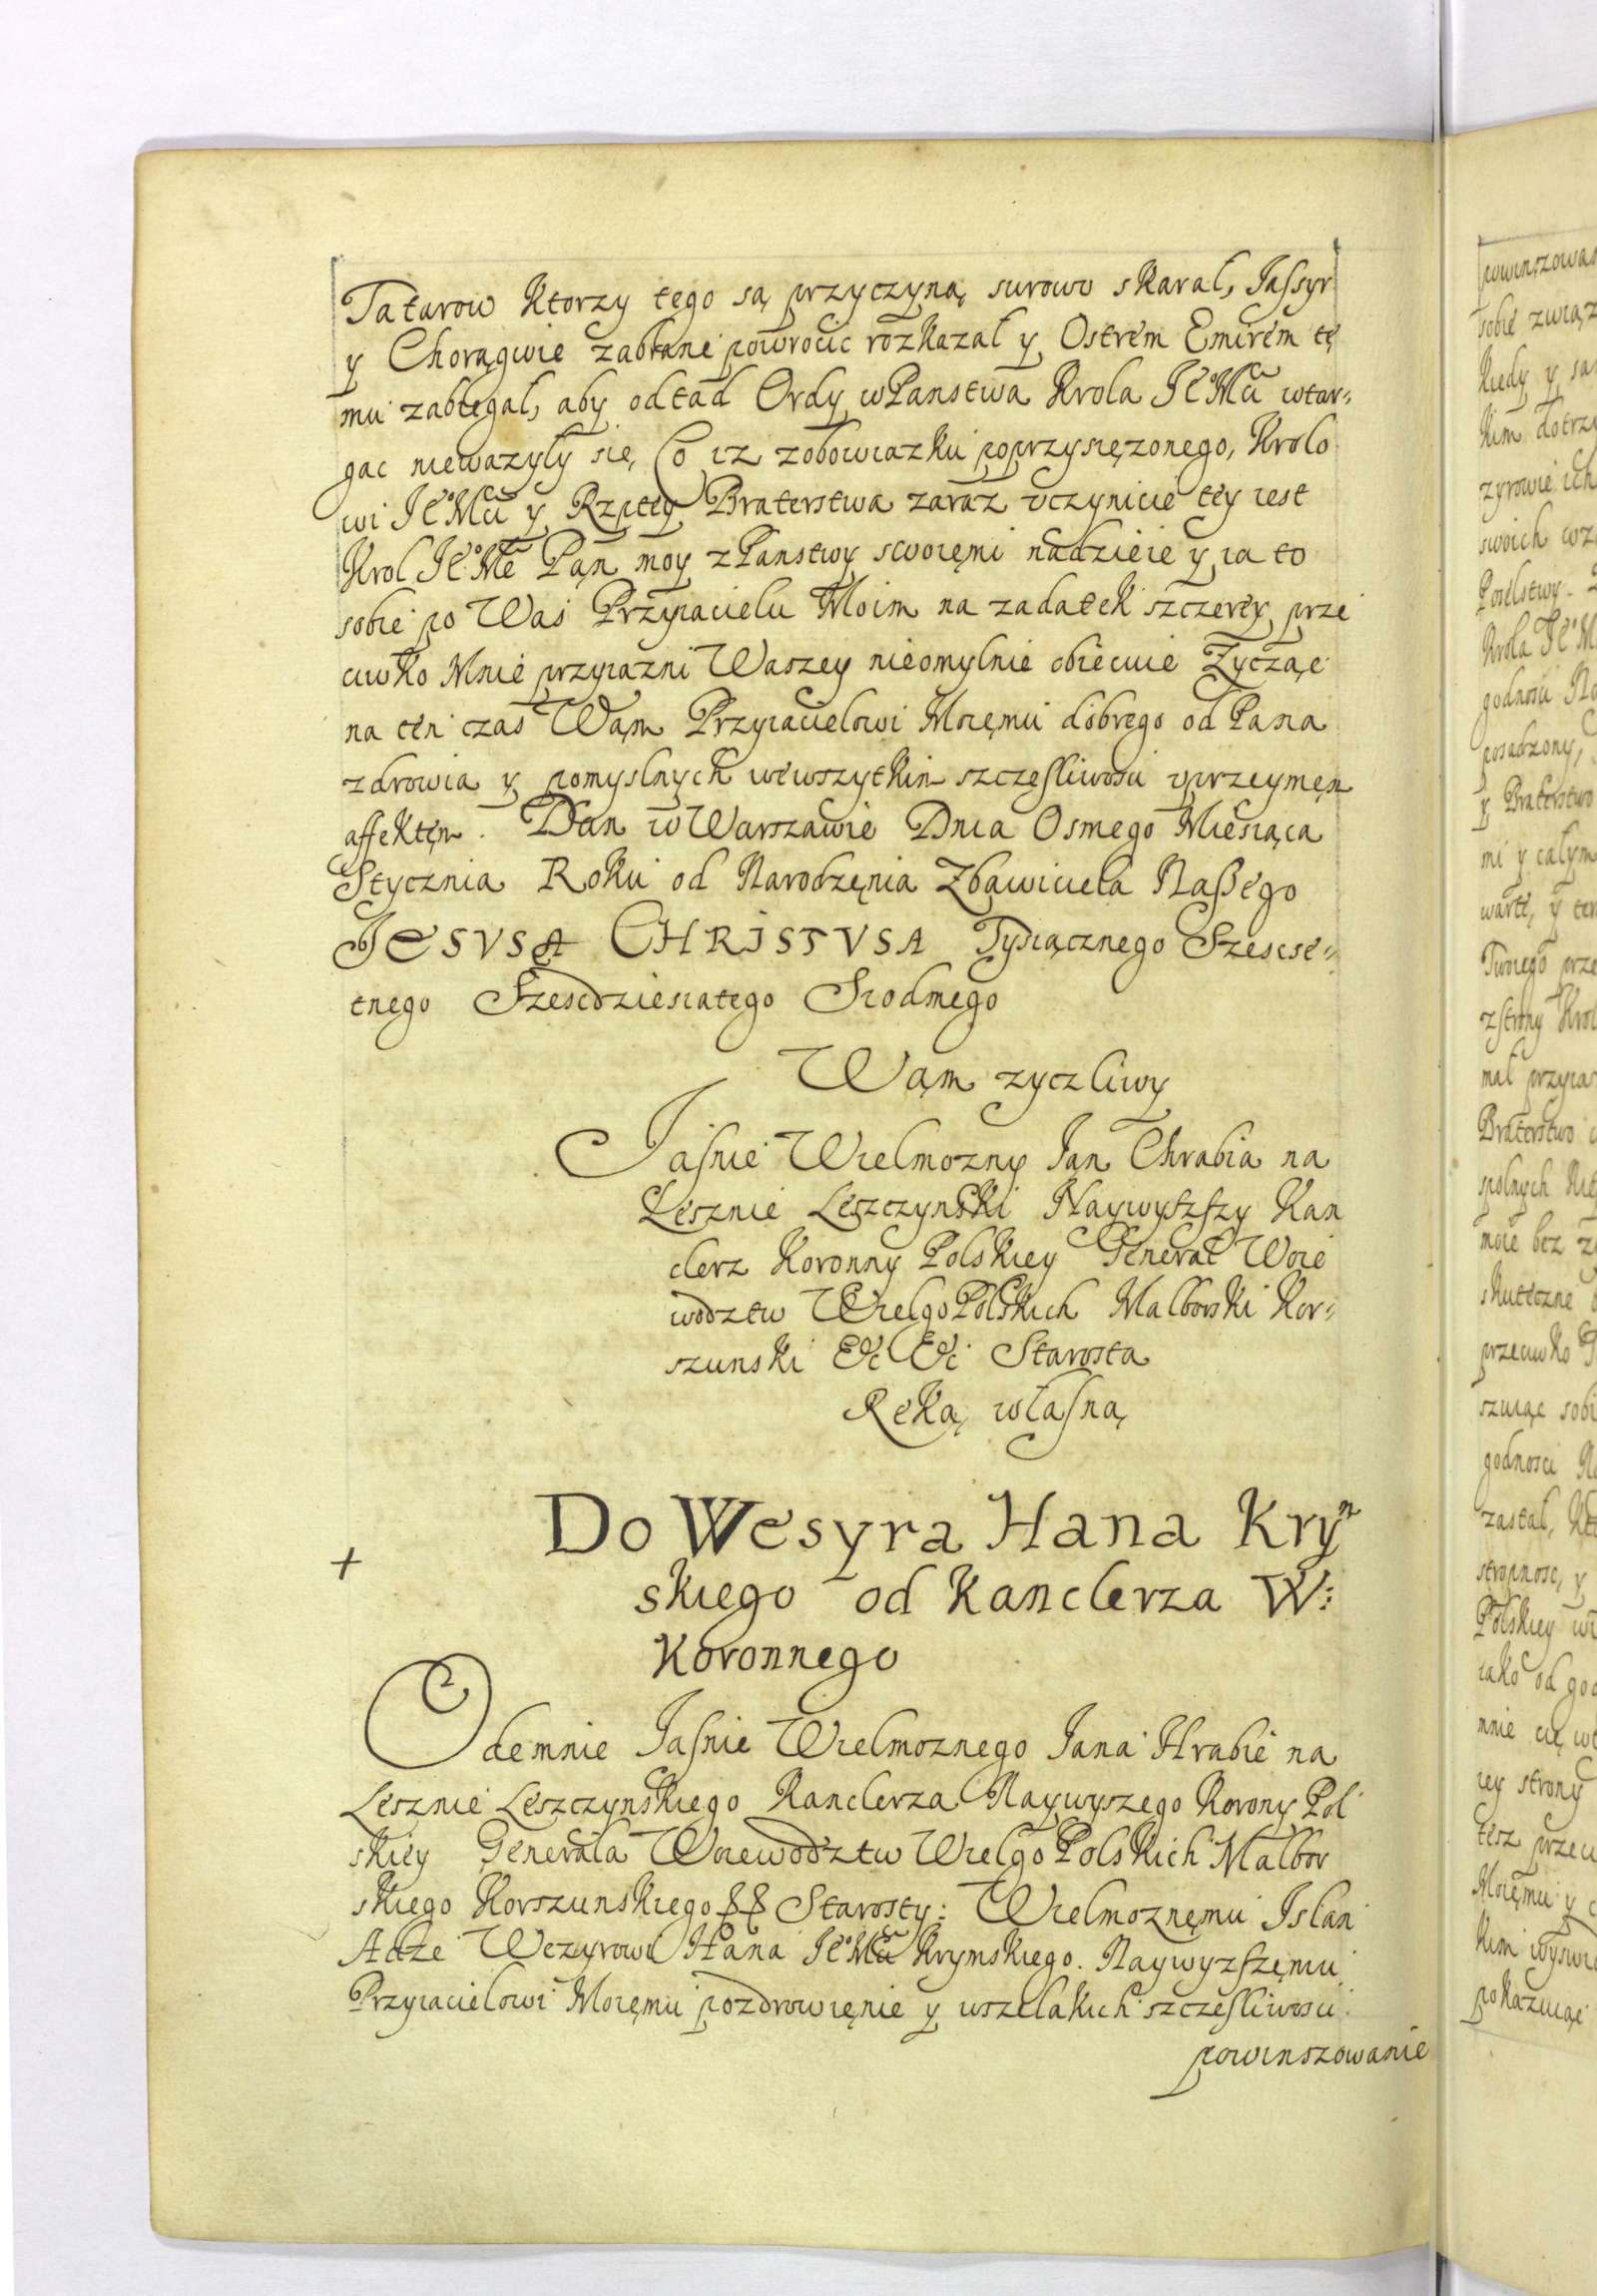 Tatarow Ktorzy tego są przyczyną surowo skaral, Jassyr
y Chorągwie zabrane powrocic rozkazal y Ostrem Emirem tę
mu zabiegal, aby odtad Ordy w Panstwa Krola Je°Mci wtar=
gac niewazyly się, Co iz zobowiazku poprzysięzonego, Krolo
wi Je°Mci y Rzptey Braterstwa zaraz vczynicie tey iest
Krol Je°Mc Pąn moy z Panstwy swoięmi nadzieie y ia to
sobie po Was Przyiacielu Moim na zadatek szczerey prze
ciwko Mnie przyiazni Waszey nieomylnie obiecuie Zycząc
na ten czas Wąm Przyiacielowi Moięmu dobrego od Pana
zdrowia y pomyslnych wewszytkim szczęsliwosci vprzeymęm
affektęm. Dan w Warszawie Dnia Osmego Miesiąca
Stycznia Roku od Narodzęnia Zbawiciela Naszego
JESVSA CHRISTVSA Tysiącznego Szescse=
tnego Szescdziesiatego Siodmego
Wąm zyczliwy
Jasnie Wielmozny Jan Chrabia na
Lesznie Leszczynski Naywyszszy Kan
clerz Koronny Polskiey General Woie
wodztw WielgoPolskich Malborski Kor=
szunski &c &c Starosta
Ręką własną
Do Wesyra Hana Kryᵐ
+
skiego od Kanclerza W:
Koronnego
Odemnie Jasnie Wielmoznego Jana Hrabie na
Lesznie Leszczynskiego Kanclerza Naywyszego Korony Pol
skiey Generala Woiewodztw WielgoPolskich Malbor
skiego Korszunskiego && Starosty: Wielmoznęmu Islan
Adze Wezyrowi Hana Je°Mci Krymskiego. Naywyzszęmu
Przyiacielowi Moięmu pozdrowięnie y wszelakich szczęsliwosci
powinszowanie